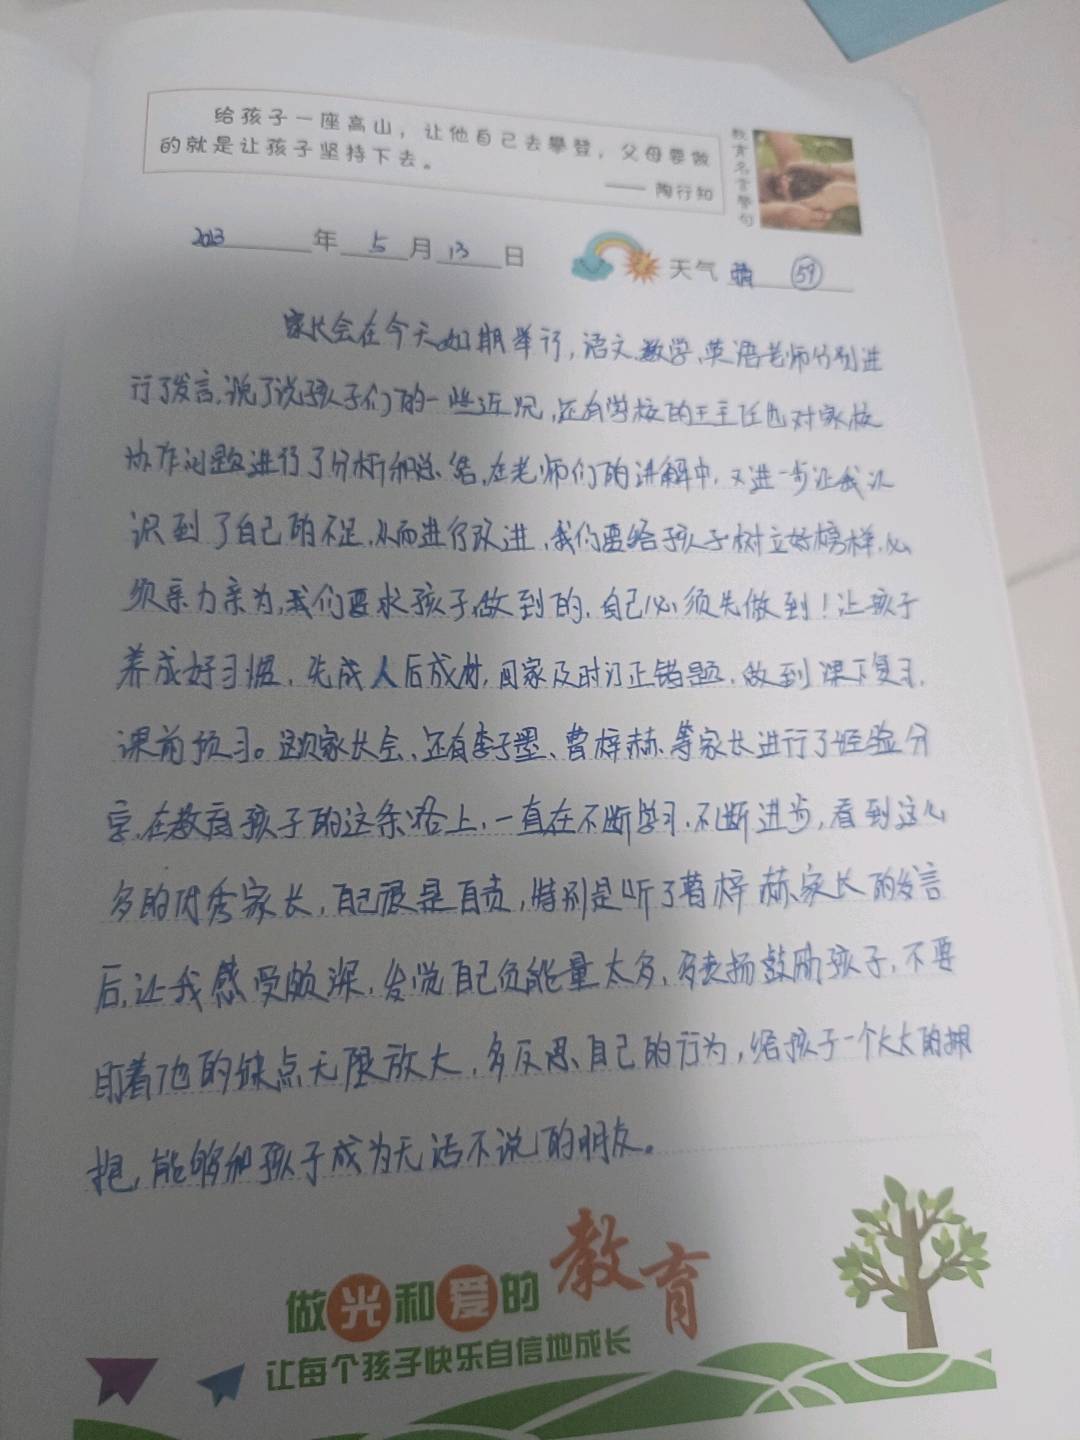 给孩子一座高山，让他自己去攀登，父母要做
的就是让孩子坚持下去。
—— 陶行知
教育名言警句
2023年 5月13日
天气 晴 59
家长会在今天如期举行，语文、数学、英语老师分别进
行了发言，说了说孩子们的一些近况，还有学校的王主任也对家校
协作问题进行了分析和总结，在老师们的讲解中，又进一步让我认
识到了自己的不足，从而进行改进，我们要给孩子树立好榜样，必
须亲力亲为，我们要求孩子做到的，自己必须先做到！让孩子
养成好习惯，先成人后成材，回家及时订正错题，做到课下复习，
课前预习。这次家长会，还有李子墨、曹梓赫等家长进行了经验分
享，在教育孩子的这条路上，一直在不断学习，不断进步，看到这么
多的优秀家长，自己很是自责，特别是听了曹梓赫家长的发言
后，让我感受颇深，发觉自己负能量太多，多表扬鼓励孩子，不要
盯着他的缺点无限放大，多反思自己的行为，给孩子一个大大的拥
抱，能够和孩子成为无话不说的朋友。
做光和爱的教育
让每个孩子快乐自信地成长